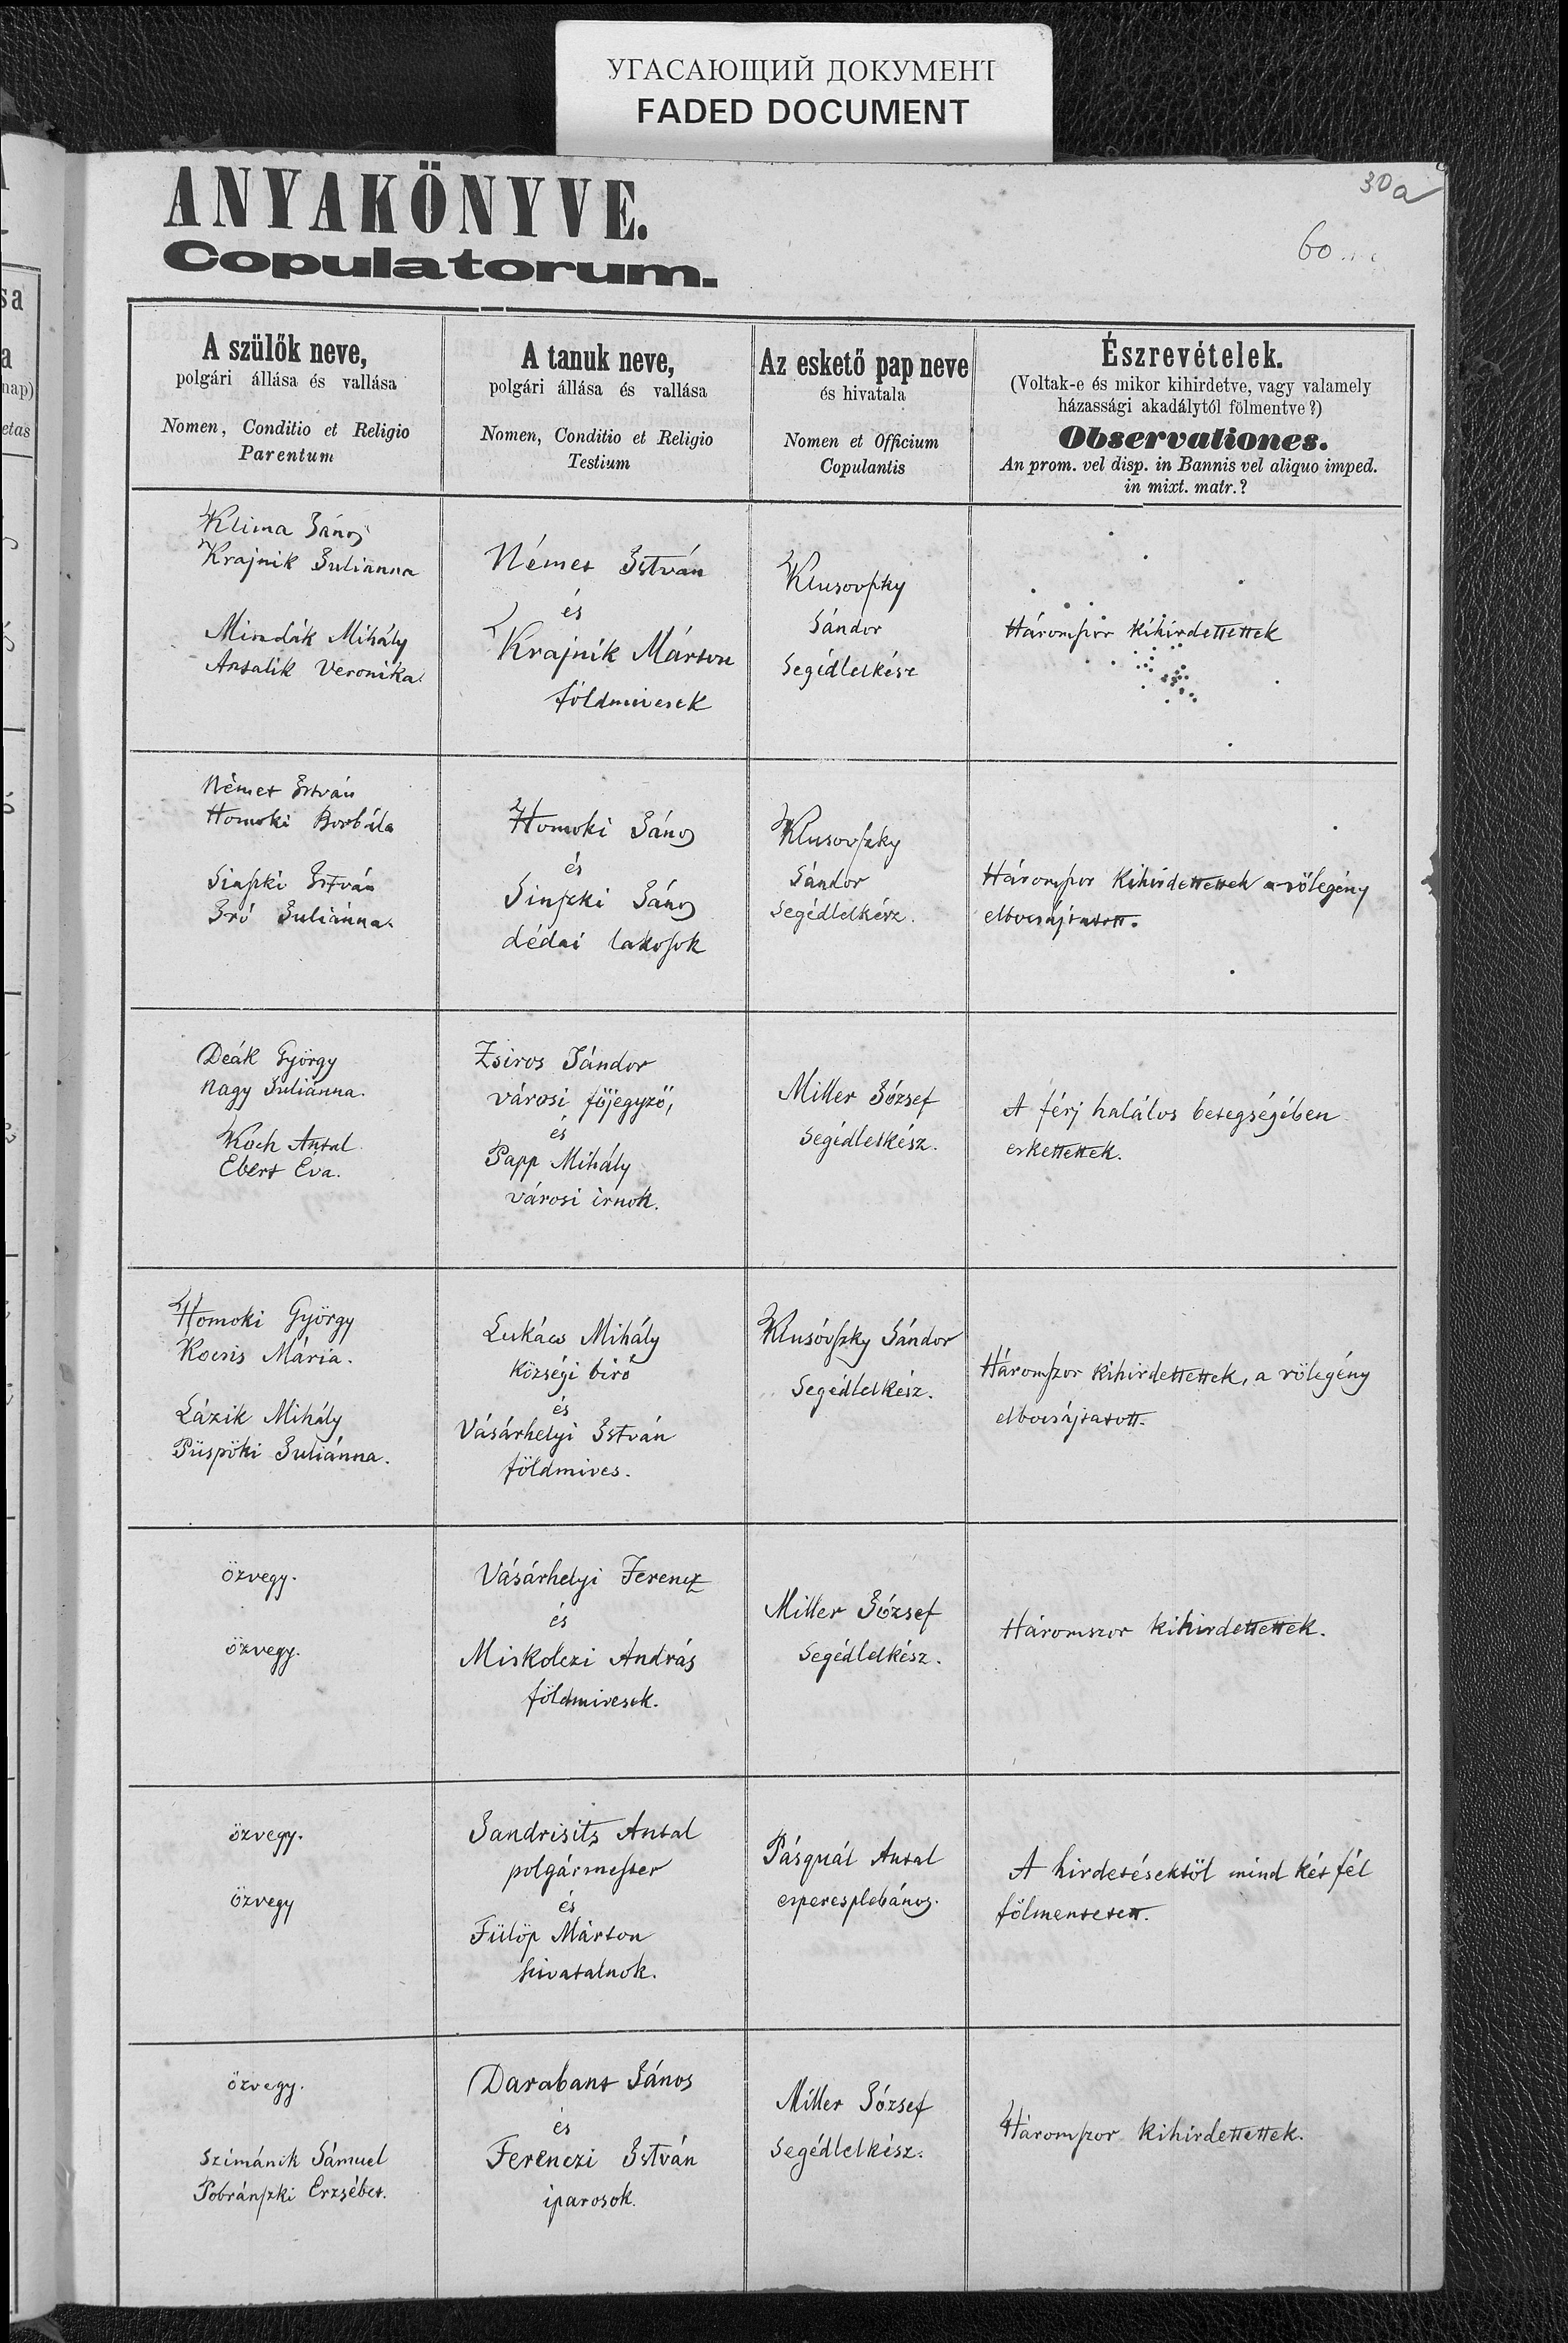 УГАСАЮЩИЙ ДОКУМЕНТ
FADED DOCUMENT
30a
60
ANYAKÖNYVE.
Copulatorum.
A szülők neve,
polgári állása és vallása
Nomen, Conditio et Religio
Parentum
A tanuk neve,
polgári állása és vallása
Nomen, Conditio et Religio
Testium
Az eskető pap neve
és hivatala
Nomen et Officium
Copulantis
Észrevételek.
(Voltak-e és mikor kihirdetve, vagy valamely
házassági akadálytól fölmentve?)
Observationes.
An prom. vel disp. in Bannis vel aliquo imped.
in mixt. matr.?
Klima János
Krajnik Julianna
Mindák Mihály
Antalik Veronika
Német István
és
Krajnik Márton
földmivesek
Klusovszky
Sándor
Segédlelkész
Háromszor kihirdettettek
Német István
Homoki Borbála
Sinszki István
Iró Juliánna.
Homoki János
és
Sinszki János
dédai lakosok
Klusovszky
Sándor
Segédlelkész.
Háromszor kihirdettettek a völegény
elbocsájtatott.
Deák György
Nagy Juliánna.
Koch Antal
Ebert Éva.
Zsiros Sándor
városi főjegyző,
és
Papp Mihály
városi irnok.
Miller József
Segédlelkész.
A férj halálos betegségében
eskettettek.
Homoki György
Kocsis Mária.
Lázik Mihály
Püspöki Juliánna.
Lukács Mihály
Községi biró
és
Vásárhelyi István
földmives.
Klusóvszky Sándor
Segédlelkész.
Háromszor kihirdettettek, a völegény
elbocsájtatott.
özvegy.
özvegy.
Vásárhelyi Ferencz
és
Miskolczi András
földmivesek.
Miller József
Segédlelkész.
Háromszor kihirdettettek.
özvegy.
özvegy
Jandrisits Antal
polgármester
és
Fülöp Márton
hivatalnok.
Pásquál Antal
esperesplebános.
A hirdetésektöl mind két fél
fölmentetett.
özvegy.
Szimánik Sámuel
Pobránszki Erzsébet.
Darabant János
és
Ferenczi István
iparosok.
Miller József
Segédlelkész.
Háromszor kihirdettettek.